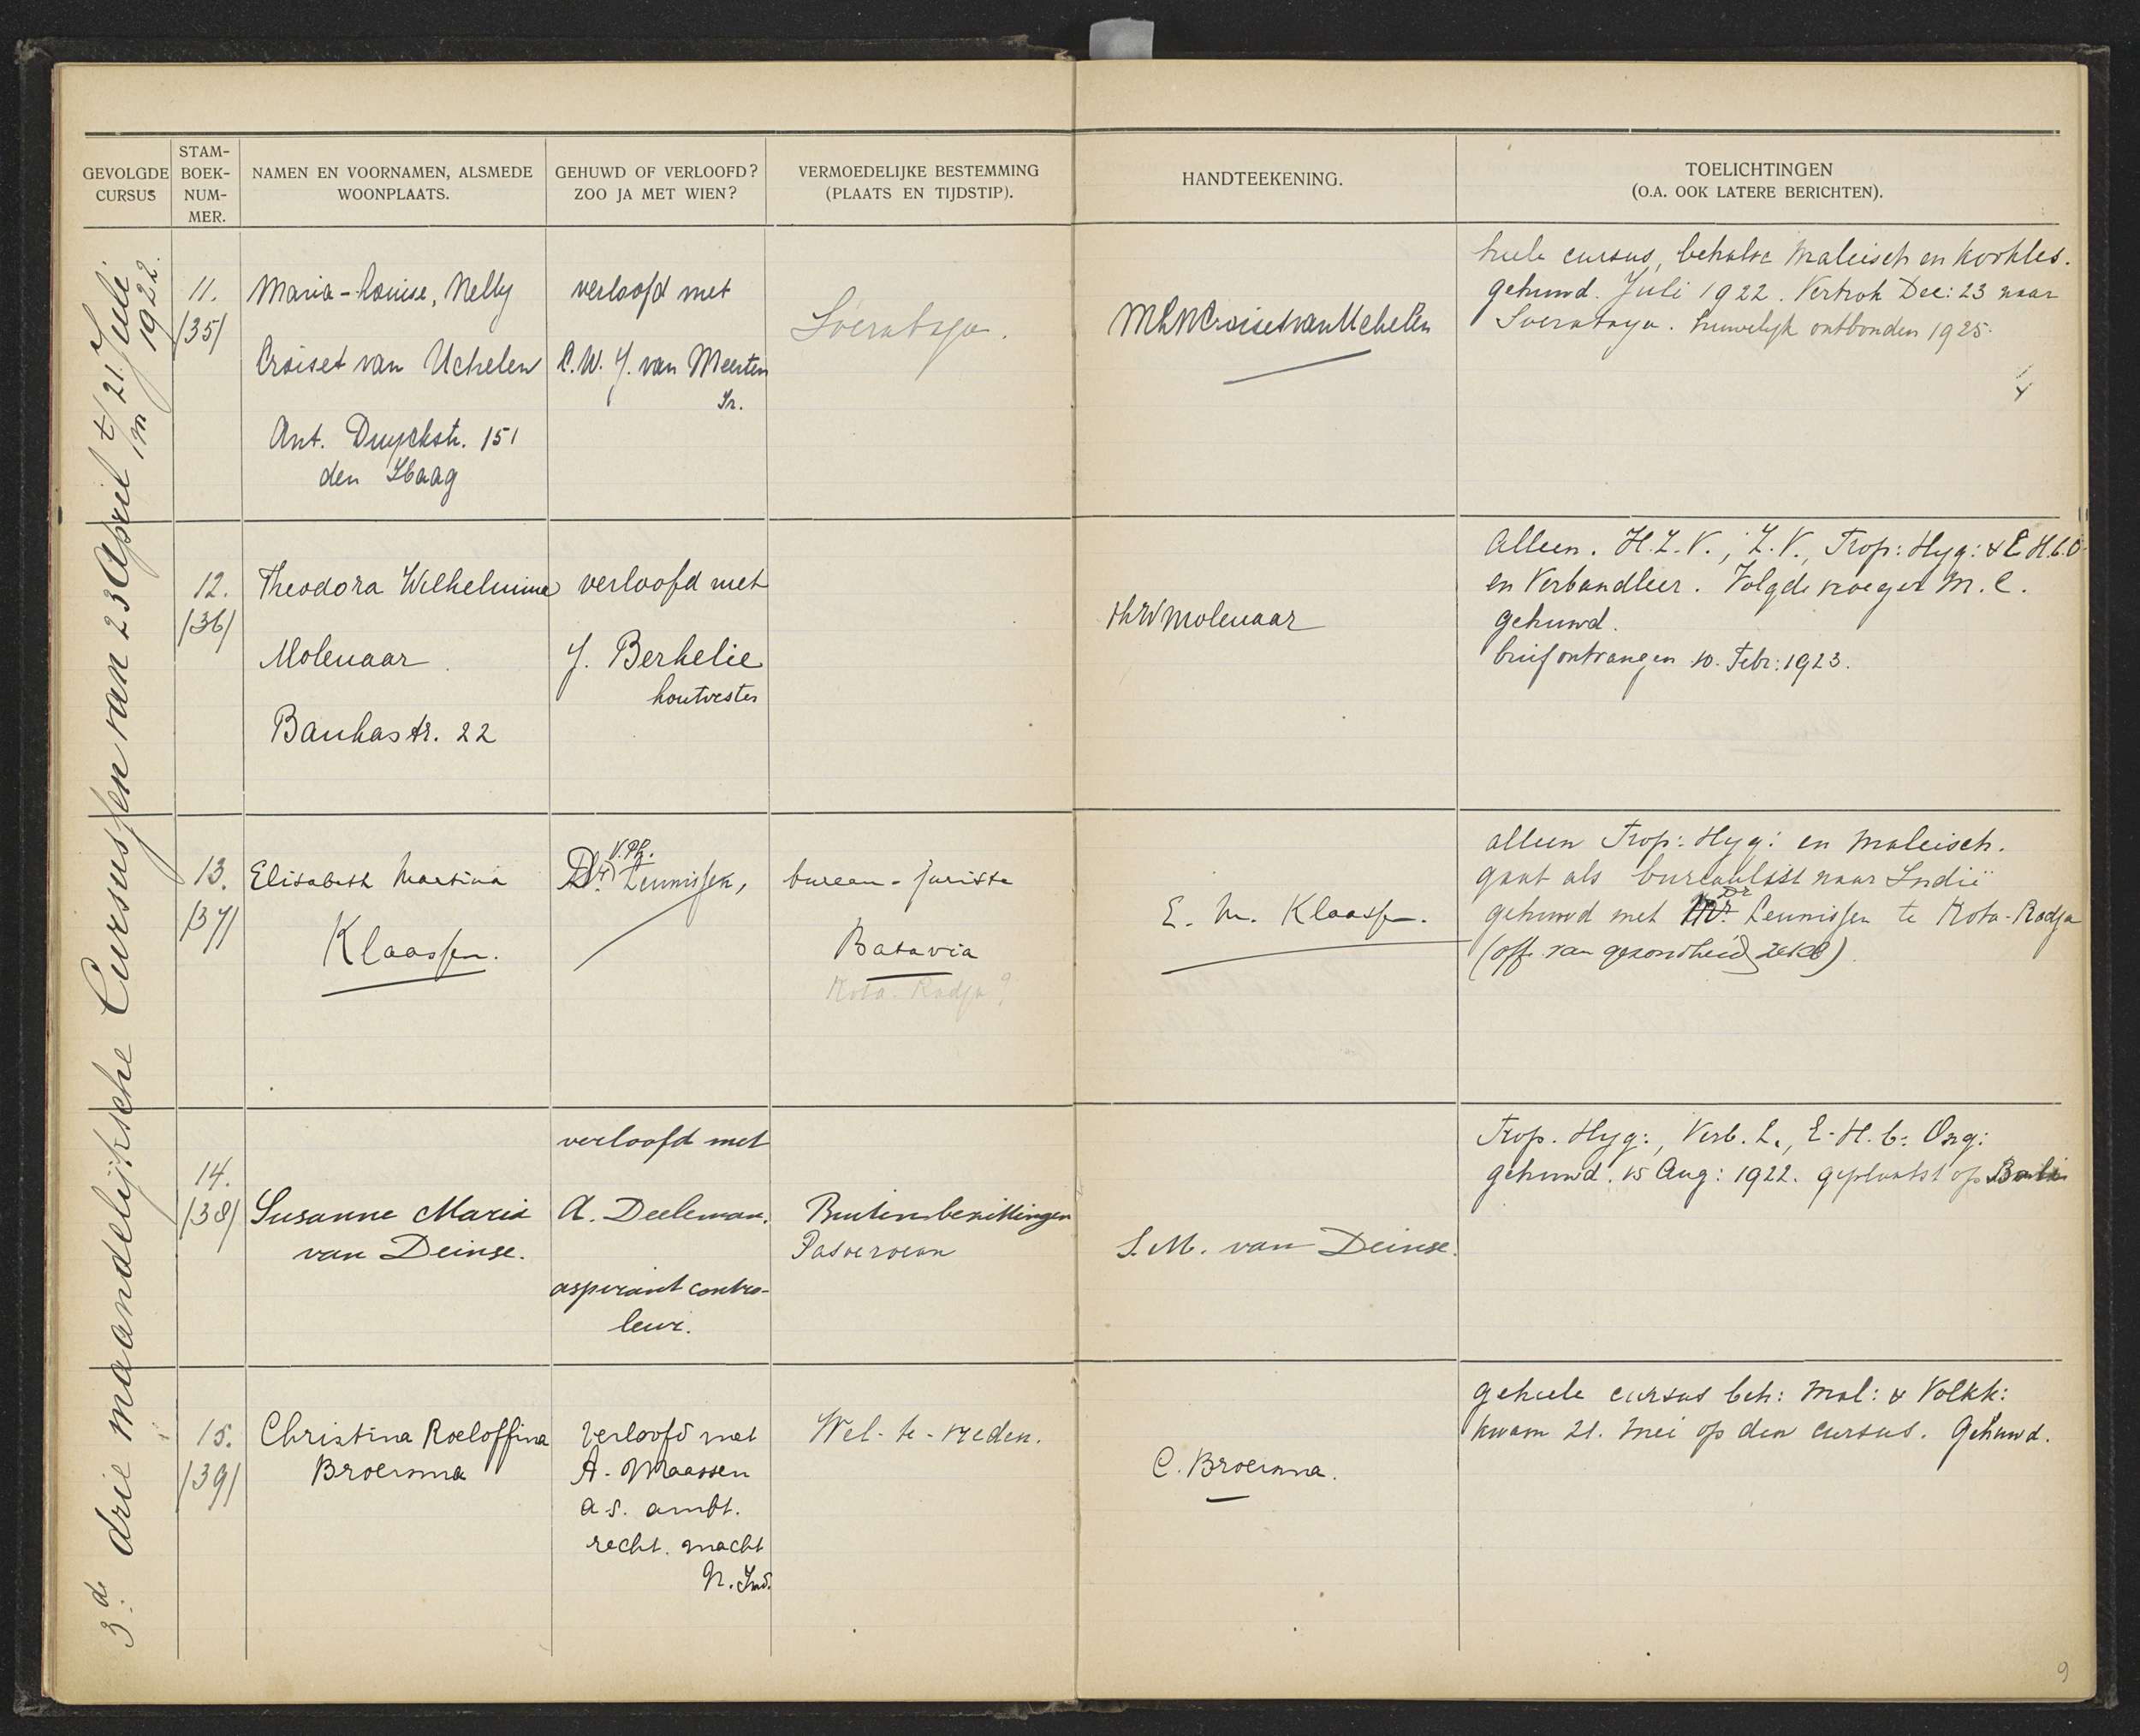 GEVOLGDE CURSUS
STAM-BOEK-NUM-MER.
NAMEN EN VOORNAMEN, ALSMEDE WOONPLAATS.
GEHUWD OF VERLOOFD? ZOO JA MET WIEN?
VERMOEDELIJKE BESTEMMING (PLAATS EN TIJDSTIP).
HANDTEEKENING.
TOELICHTINGEN (O.A. OOK LATERE BERICHTEN).
3de drie maandelijksche Cursussen van 23 April t/m 21. Juli 1922.
11.
/35/
Maria-Louise, Nelly
Croiset van Uchelen
Ant. Duyckstr. 151
den Haag
verloofd met
C.W.J. van Meerten
Ir.
Soerabaja.
MLNCroisetvanUchelen
heele cursus, behalve Maleisch en kookles.
gehuwd. Juli 1922. Vertrok Dec: 23 naar
Soerabaya. huwelijk ontbonden 1925.
12.
/36/
Theodora Wilhelmina
Molenaar
Bankastr. 22
verloofd met
J. Berkelie
houtvester
ThWMolenaar
Alleen. H.Z.V., Z.V., Trop: Hyg: & E.H.b.O.
en Verbandleer. Volgde vroeger M.C.
gehuwd.
brief ontvangen 10. Febr: 1923.
13.
/37/
Elisabeth Martina
Klaassen.
V.Ph.
Dr. Leunissen,
bureau-juriste
Batavia
Kota-Radja?
E. M. Klaassen.
alleen Trop: Hyg: en Maleisch.
gaat als bureaulist naar Indië
gehuwd met Dr Leunissen te Kota-Radja
(off. van gezondheid 2e kl)
14.
/38/
Susanne Maria
van Deinse.
verloofd met
A. Deeleman.
aspirant contro-
leur.
Buitenbezittingen
Pasoeroean
S.M. van Deinse.
Trop. Hyg:, Verb. L., E-H.b: Ong:
gehuwd. 15 Aug: 1922. geplaatst op
15.
/39/
Christina Roeloffina
Broersma
verloofd met
A. Maassen
a.s. ambt.
recht. macht
N. Ind.
Wel-te-vreden.
C. Broersma.
geheele cursus beh: Mal: & Volkk:
kwam 21. Mei op den cursus. Gehuwd.
9